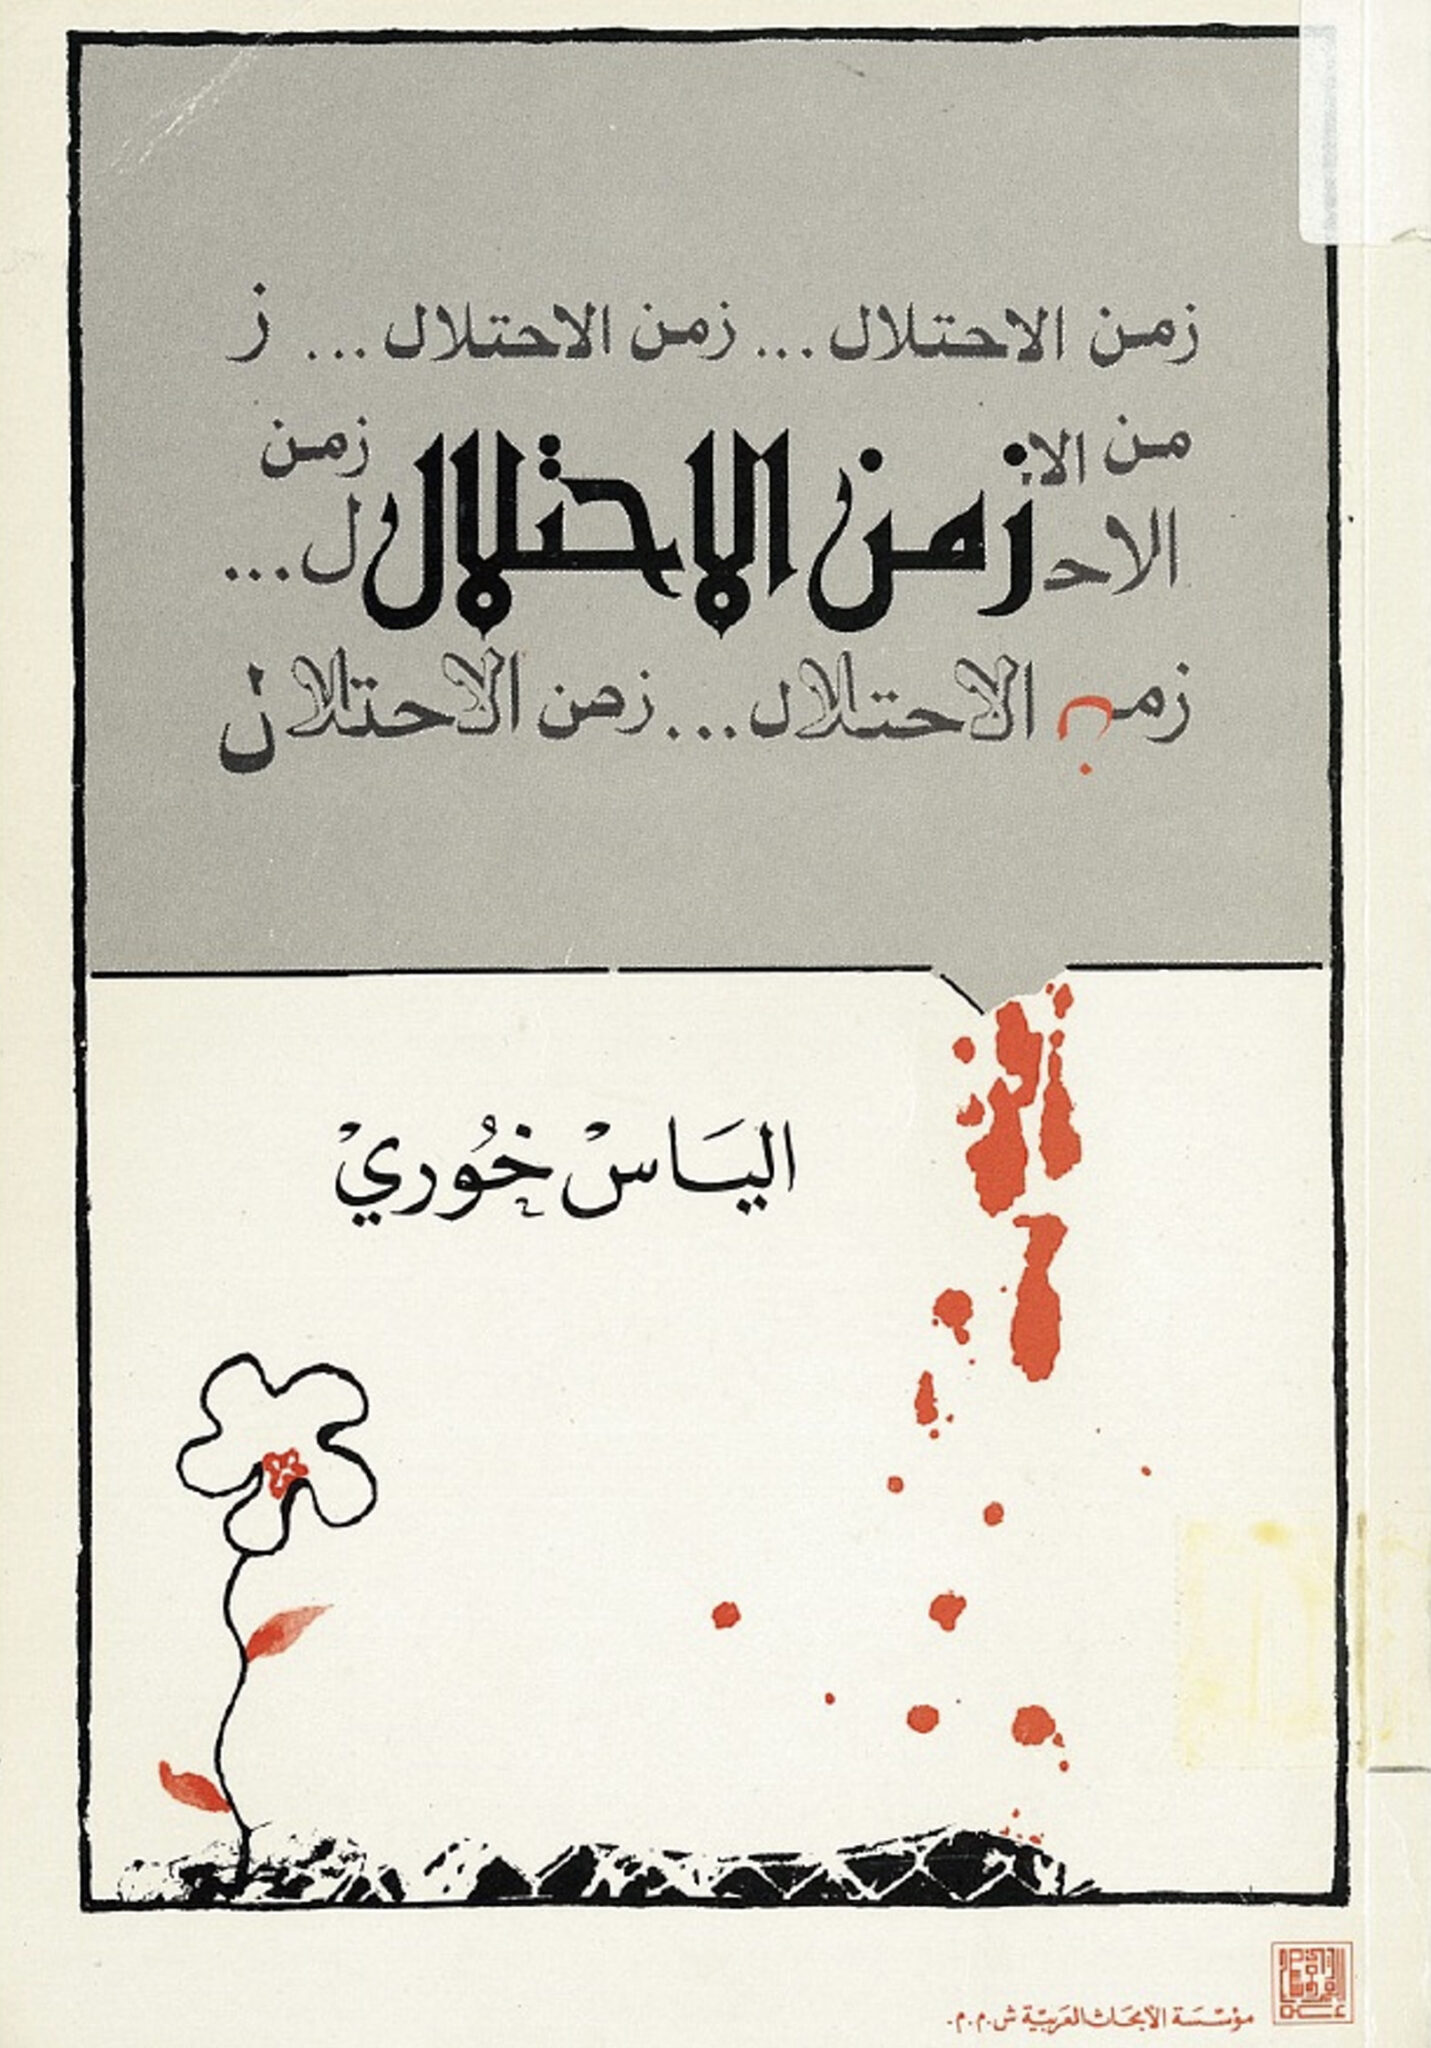 زمن الاحتلال... زمن الاحتلال... ز
من الا زمن
الاحـ ل...
زمن الاحتلال
زمن الاحتلال... زمن الاحتلال
الياسْ خُوريْ
مؤسسة الأبحاث العربية ش.م.م.